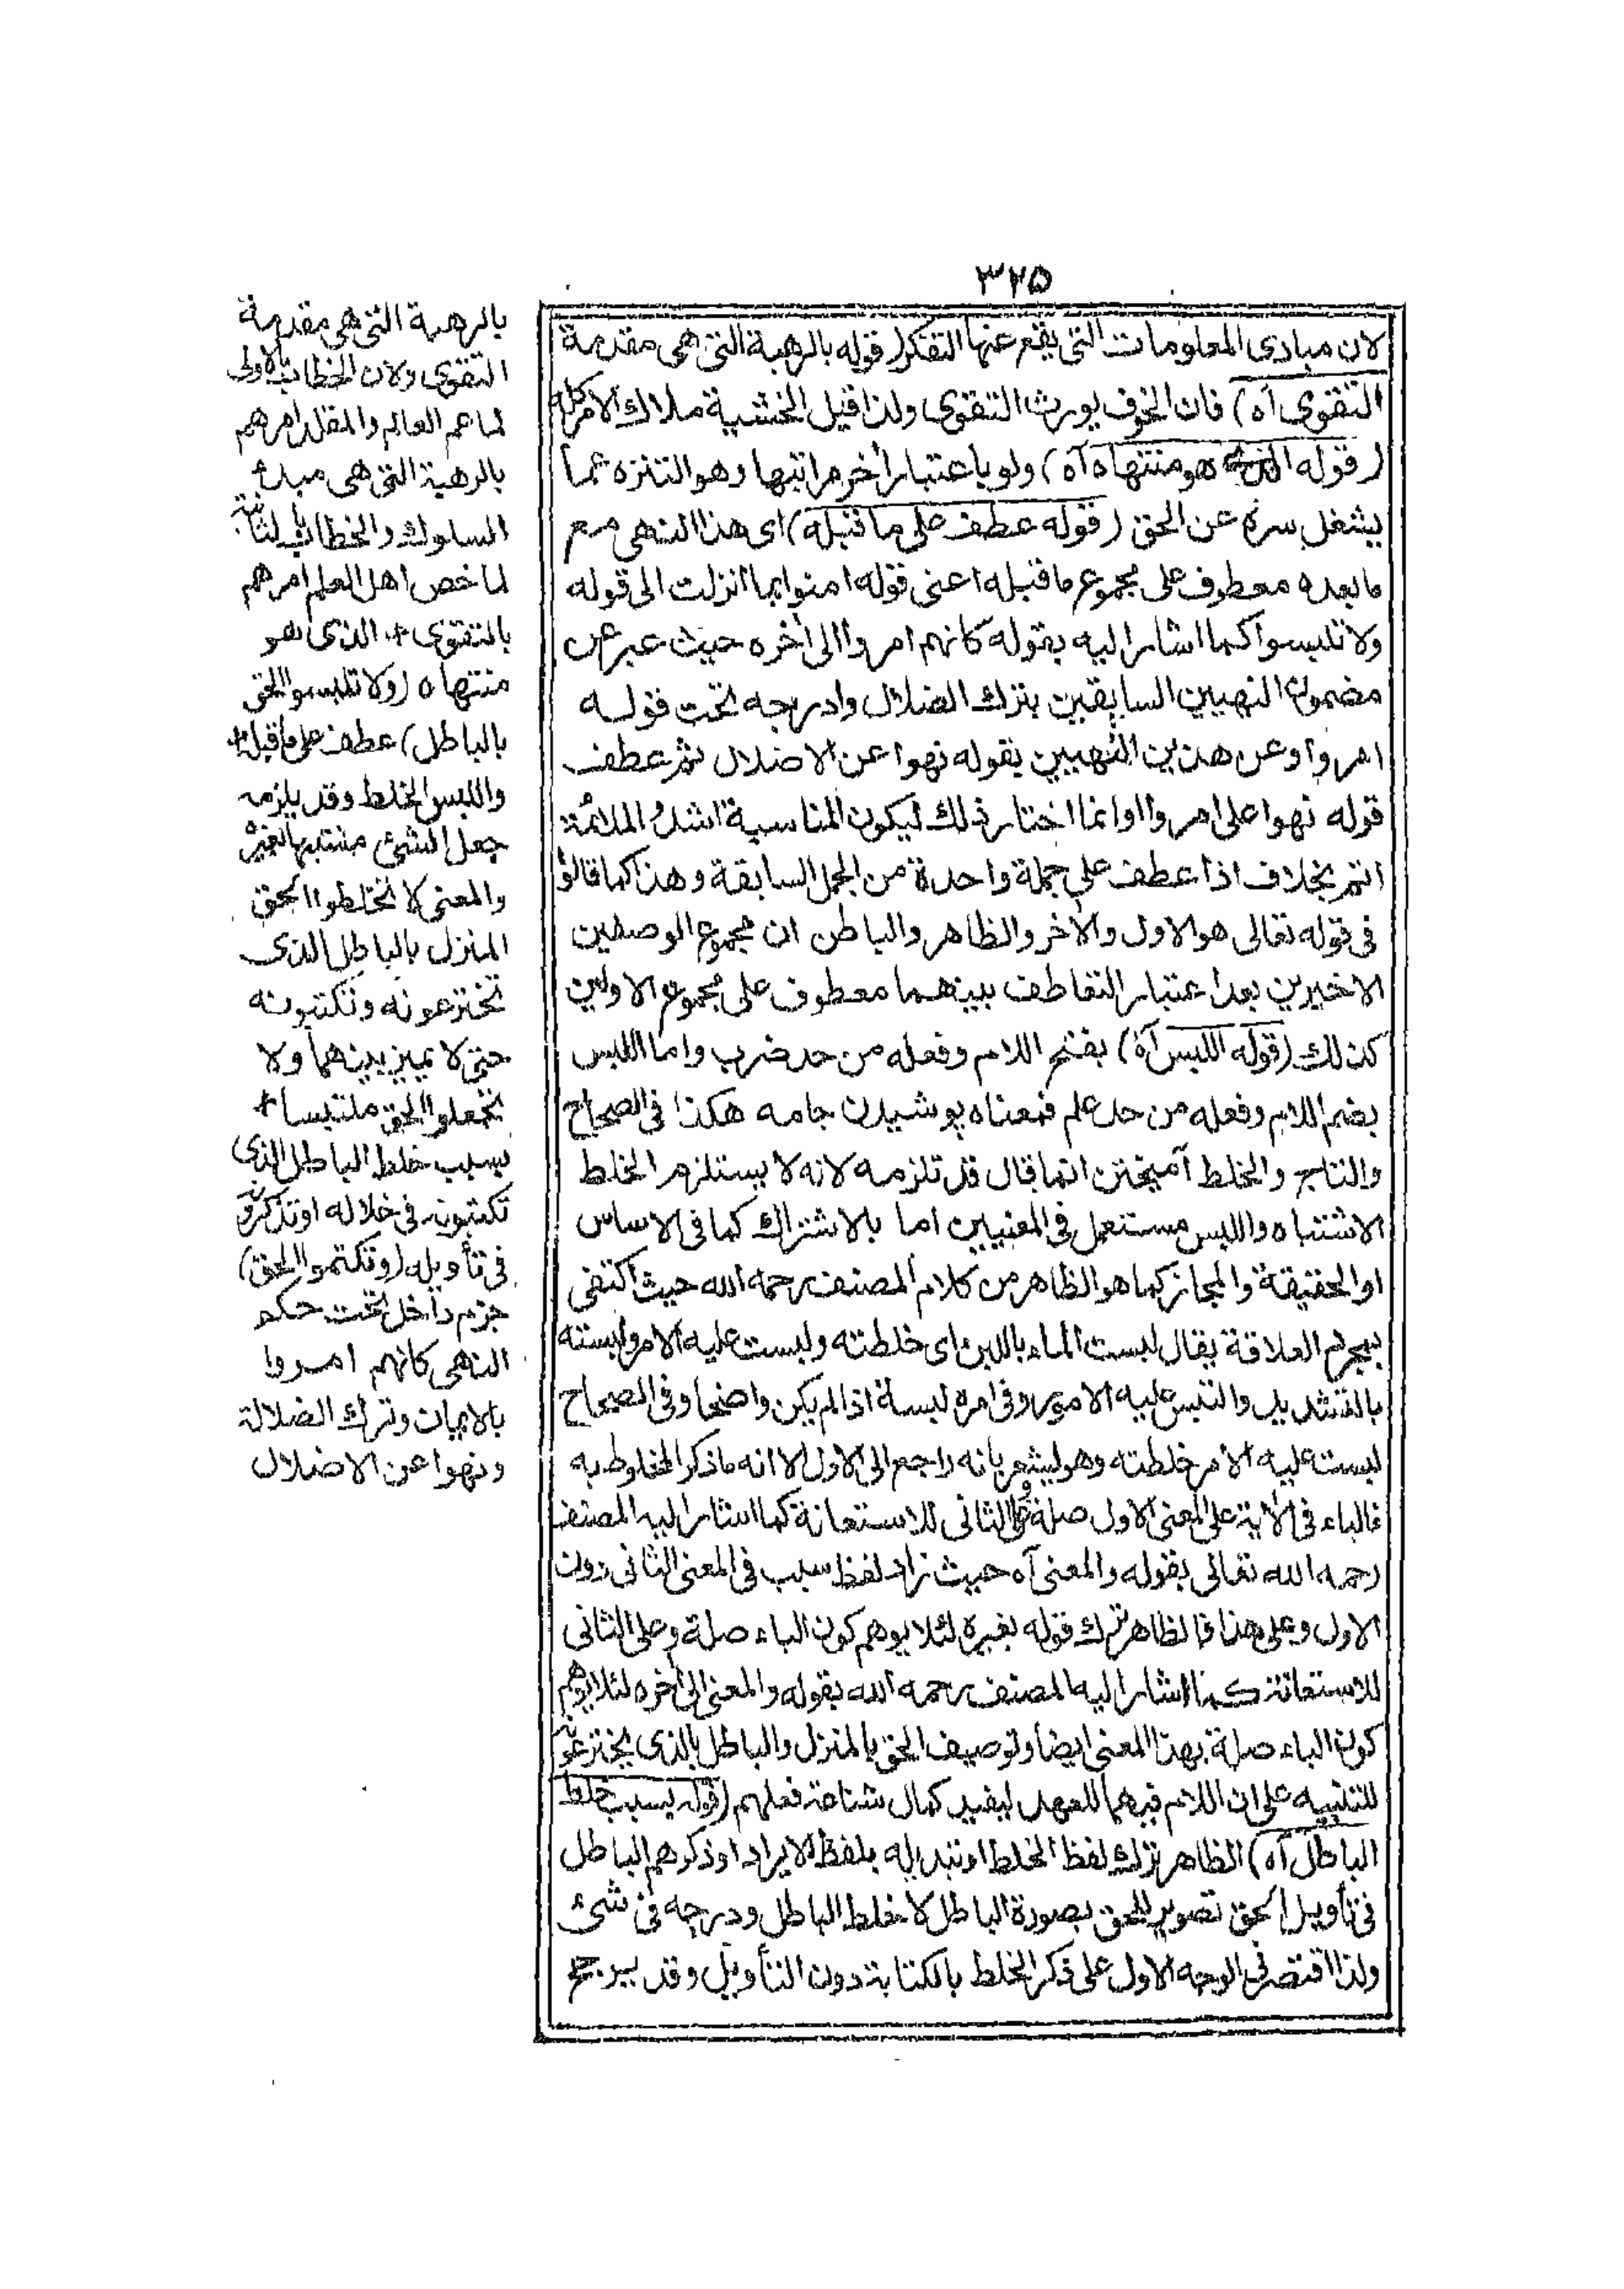 ٣٢٥
لان مبادى المعلومات التى يقع عنها التفكر (قوله بالرهبة التى هى مقدمة
التقوى آه) فان الخوف يورث التقوى ولذا قيل الخشية ملاك الامر كله
(قوله الذى هو منتهاه آه) ولو باعتبار أخر مراتبها وهو التنزه عما
يشغل سره عن الحق (قوله عطف على ما قبله) اى هذا النهى مع
ما بعده معطوف على مجموع ما قبله اعنى قوله امنوا بما انزلت الى قوله
ولا تلبسوا كما اشار اليه بقوله كانهم امروا الى أخره حيث عبر عن
مضمون النهيين السابقين بترك الضلال وادرجه تحت قوله
امروا وعن هذين النهيين بقوله نهوا عن الاضلال ثم عطف
قوله نهوا على امروا وانما اختار ذلك ليكون المناسبة اشد والملائمة
اتم بخلاف اذا عطف على جملة واحدة من الجمل السابقة وهذا كما قالوا
فى قوله تعالى هو الاول والأخر والظاهر والباطن ان مجموع الوصفين
الاخيرين بعد اعتبار التعاطف بينهما معطوف على مجموع الاولين
كذلك (قوله اللبس آه) بفتح اللام وفعله من حد ضرب واما اللبس
بضم اللام وفعله من حد علم فمعناه پوشيدن جامه هكذا فى الصحاح
والتاج والخلط آميختن انما قال قد تلزمه لانه لا يستلزم الخلط
الاشتباه واللبس مستعمل فى المعنيين اما بالاشتراك كما فى الاساس
او الحقيقة والمجاز كما هو الظاهر من كلام المصنف رحمه الله حيث اكتفى
بمجرد العلاقة يقال لبست الماء باللبن اى خلطته ولبست عليه الامر ولبسته
بالتشديد والتبس عليه الامور وفى امره لبسة اذا لم يكن واضحا وفى الصحاح
لبست عليه الامر خلطته وهو ليشعر بانه راجع الى الاول الا انه ما ذكر المخلوط به
فالباء فى الأية على المعنى الاول صلة وعلى الثانى للاستعانة كما اشار اليه المصنف
رحمه الله تعالى بقوله والمعنى آه حيث زاد لفظ سبب فى المعنى الثانى دون
الاول وعلى هذا فالظاهر ترك قوله بغيره لئلا يوهم كون الباء صلة وعلى الثانى
للاستعانة كما اشار اليه المصنف رحمه الله بقوله والمعنى الى أخره لئلا يوهم
كون الباء صلة بهذا المعنى ايضا وتوصيف الحق بالمنزل والباطل بالذى يخترعونه
للتنبيه على ان اللام فيهما للعهد ليفيد كمال شناعة فعلهم (قوله بسبب خلط
الباطل آه) الظاهر ترك لفظ الخلط او تبديله بلفظ الايراد او ذكرهم الباطل
فى تأويل الحق تصوير للحق بصورة الباطل لا خلط الباطل ودرجه فى شىء
ولذا اقتصر فى الوجه الاول على ذكر الخلط بالكتابة دون التأويل وقد يرجح
بالرهبة التى هى مقدمة
التقوى ولان الخطاب بالاولى
لما عم العالم والمقلد امرهم
بالرهبة التى هى مبدء
السلوك والخطاب بالثانية
لما خص اهل العلم امرهم
بالتقوى + الذى هو
منتهاه (ولا تلبسوا الحق
بالباطل) عطف على ما قبله +
واللبس الخلط وقد يلزمه
جعل الشىء مشتبها بغيره
والمعنى لا تخلطوا الحق
المنزل بالباطل الذى
تخترعونه وتكتبونه
حتى لا تميز بينهما ولا
تجعلوا الحق ملتبسا +
بسبب خلط الباطل الذى
تكتبونه فى خلاله او تذكرونه
فى تأويله (وتكتموا الحق)
جزم داخل تحت حكم
النهى كانهم امروا
بالايمان وترك الضلالة
ونهوا عن الاضلال